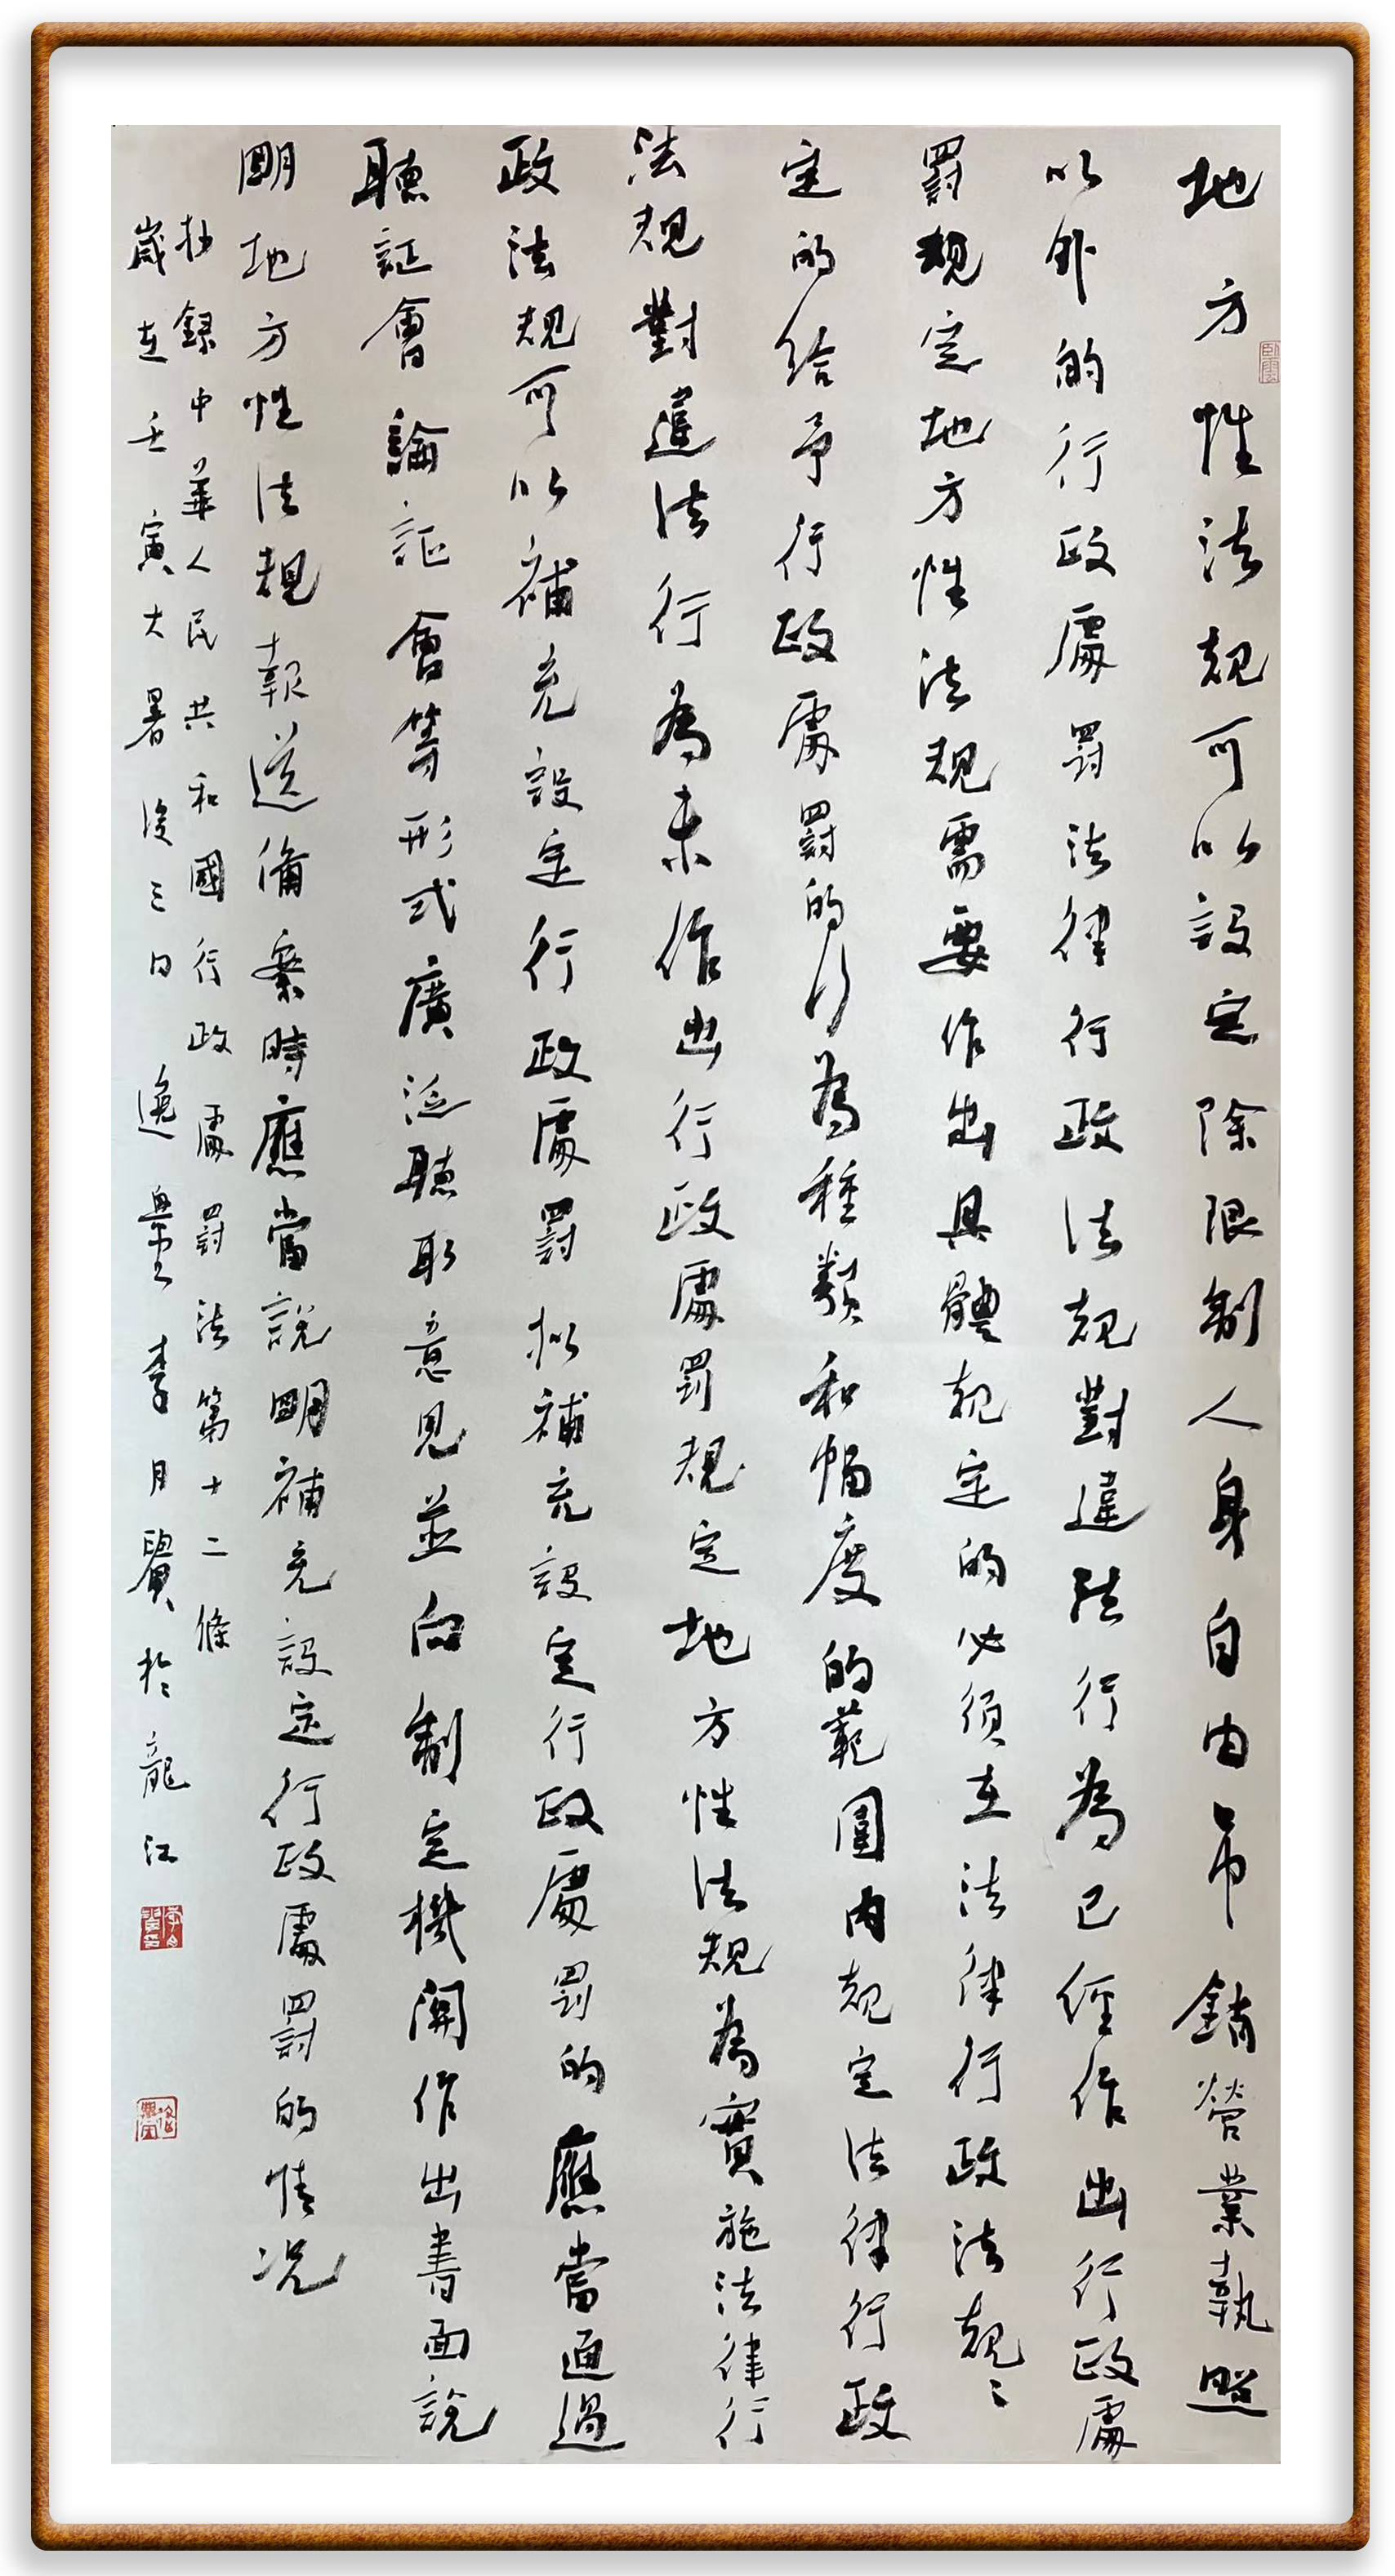 地方性法規可以設定除限制人身自由吊銷營業執照
以外的行政處罰法律行政法規對違法行為已經作出行政處
罰規定地方性法規需要作出具體規定的必須在法律行政法規〻
定的給予行政處罰的行為種類和幅度的範圍内規定法律行政
法規對違法行為未作出行政處罰規定地方性法規為實施法律行
政法規可以補充設定行政處罰拟補充設定行政處罰的應當通過
聽証會論証會等形式廣泛聽取意見並向制定機關作出書面說
明地方性法規報送備案時應當說明補充設定行政處罰的情况
抄錄中華人民共和國行政處罰法第十二條
歲在壬寅大暑後三日逸李月賢於龍江
臥雲